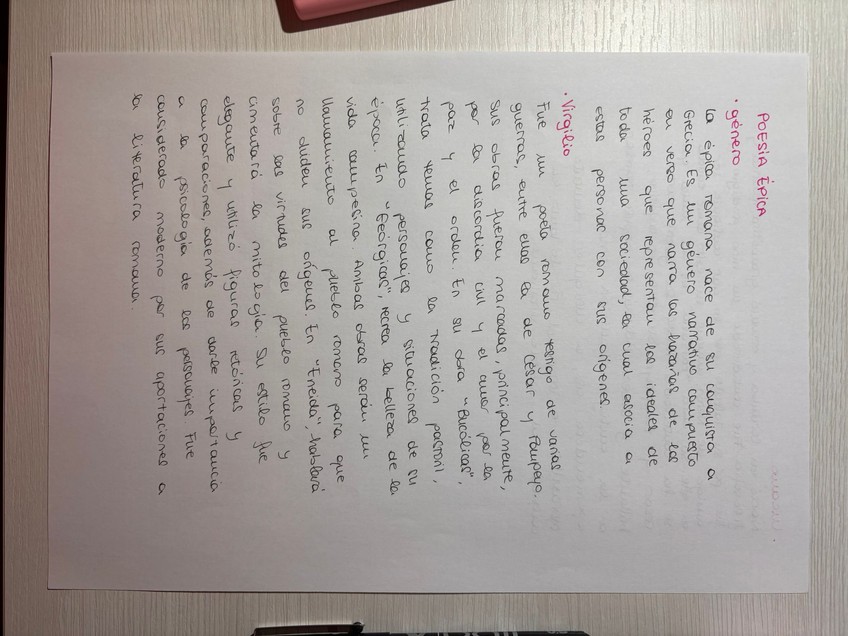 POESÍA ÉPICA
· género
La épica romana nace de su conquista a
Grecia. Es un género narrativo compuesto
en verso que narra las hazañas de los
héroes que representan los ideales de
toda una sociedad, la cual asocia a
estas personas con sus orígenes.
· Virgilio
Fue un poeta romano testigo de varias
guerras, entre ellas la de César y Pompeyo.
Sus obras fueron marcadas, principalmente,
por la discordia civil y el amor por la
paz y el orden. En su obra "Bucólicas",
trata temas como la tradición pastoril,
utilizando personajes y situaciones de su
época. En "Geórgicas", recrea la belleza de la
vida campesina. Ambas obras serán un
llamamiento al pueblo romano para que
no olviden sus orígenes. En "Eneida", hablará
sobre las virtudes del pueblo romano y
cimentará la mitología. Su estilo fue
elegante y utilizó figuras retóricas y
comparaciones, además de darle importancia
a la psicología de los personajes. Fue
considerado moderno por sus aportaciones a
la literatura romana.